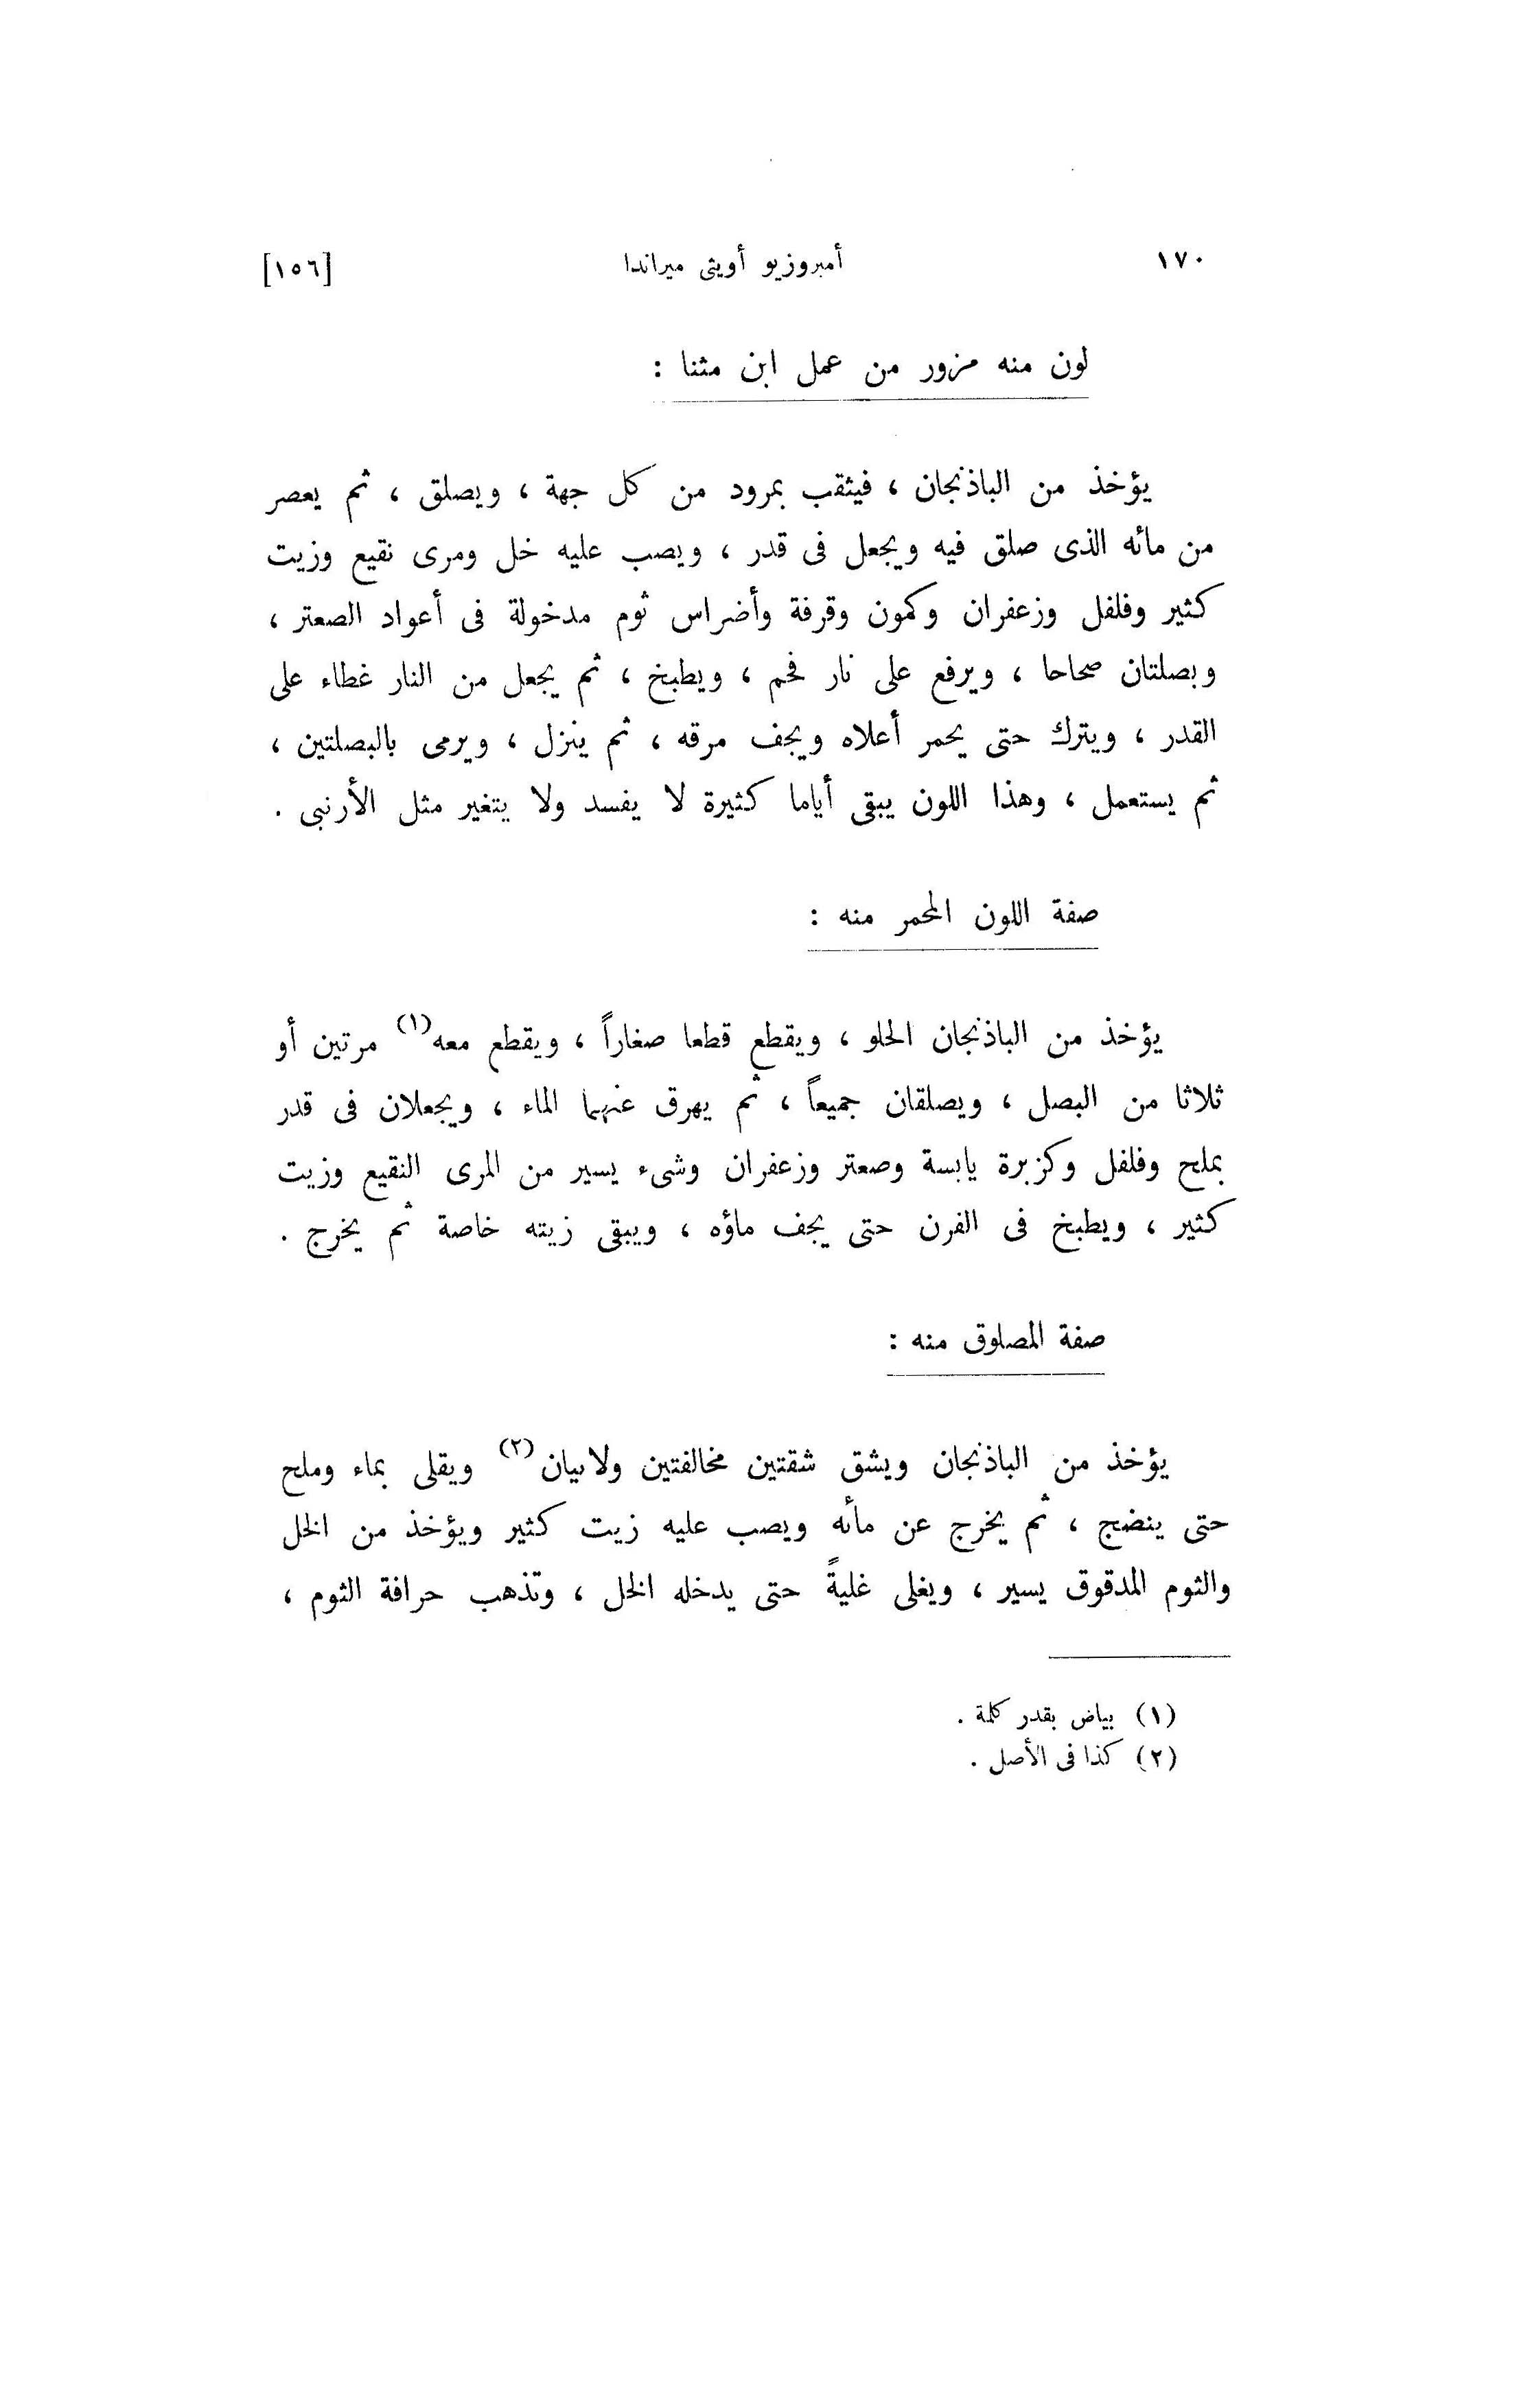 ١٧٠ أمبروزيو أويثى ميراندا [١٥٦]
لون منه مزور من عمل ابن مثنا :
يؤخذ من الباذنجان ، فيثقب بمرود من كل جهة ، ويصلق ، ثم يعصر
من مائه الذى صلق فيه ويجعل فى قدر ، ويصب عليه خل ومرى نقيع وزيت
كثير وفلفل وزعفران وكمون وقرفة وأضراس ثوم مدخولة فى أعواد الصعتر ،
وبصلتان صحاحا ، ويرفع على نار فحم ، ويطبخ ، ثم يجعل من النار غطاء على
القدر ، ويترك حتى يحمر أعلاه ويجف مرقه ، ثم ينزل ، ويرمى بالبصلتين ،
ثم يستعمل ، وهذا اللون يبقى أياما كثيرة لا يفسد ولا يتغير مثل الأرنبى .
صفة اللون المحمر منه :
يؤخذ من الباذنجان الحلو ، ويقطع قطعا صغاراً ، ويقطع معه(١) مرتين أو
ثلاثا من البصل ، ويصلقان جميعاً ، ثم يهرق عنهما الماء ، ويجعلان فى قدر
بملح وفلفل وكزبرة يابسة وصعتر وزعفران وشىء يسير من المرى النقيع وزيت
كثير ، ويطبخ فى الفرن حتى يجف ماؤه ، ويبقى زيته خاصة ثم يخرج .
صفة المصلوق منه :
يؤخذ من الباذنجان ويشق شقتين مخالفتين ولابيان(٢) ويقلى بماء وملح
حتى ينضج ، ثم يخرج عن مائه ويصب عليه زيت كثير ويؤخذ من الخل
والثوم المدقوق يسير ، ويغلى غليةً حتى يدخله الخل ، وتذهب حرافة الثوم ،
(١) بياض بقدر كلمة .
(٢) كذا فى الأصل .